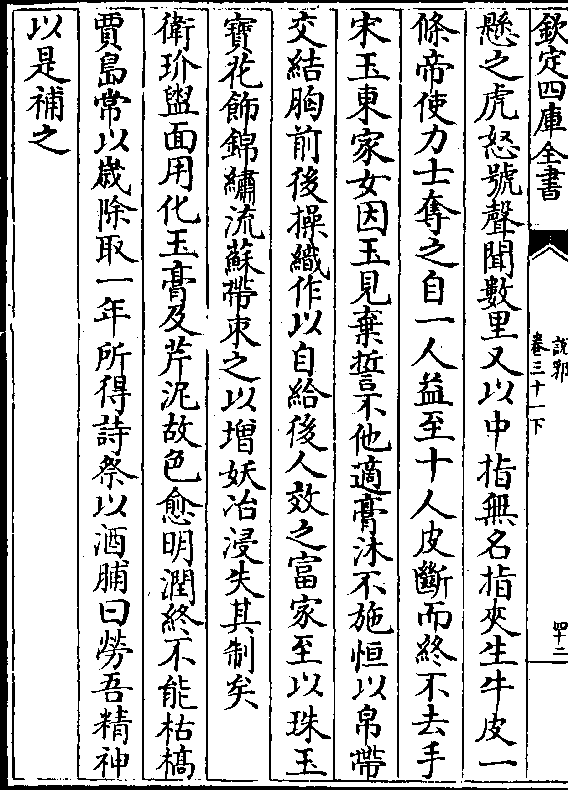 欽定四庫全書
說郛
卷三十一下
四十二
懸之虎怒號聲聞數里又以中指無名指夾生牛皮一
條帝使力士奪之自一人益至十人皮斷而終不去手
宋玉東家女因玉見棄誓不他適膏沐不施恒以帛帶
交結胸前後操織作以自給後人效之富家至以珠玉
寶花飾錦繡流蘇帶束之以增妖冶浸失其制矣
衛玠盥面用化玉膏及芹泥故色愈明潤終不能枯槁
賈島常以歲除取一年所得詩祭以酒脯曰勞吾精神
以是補之